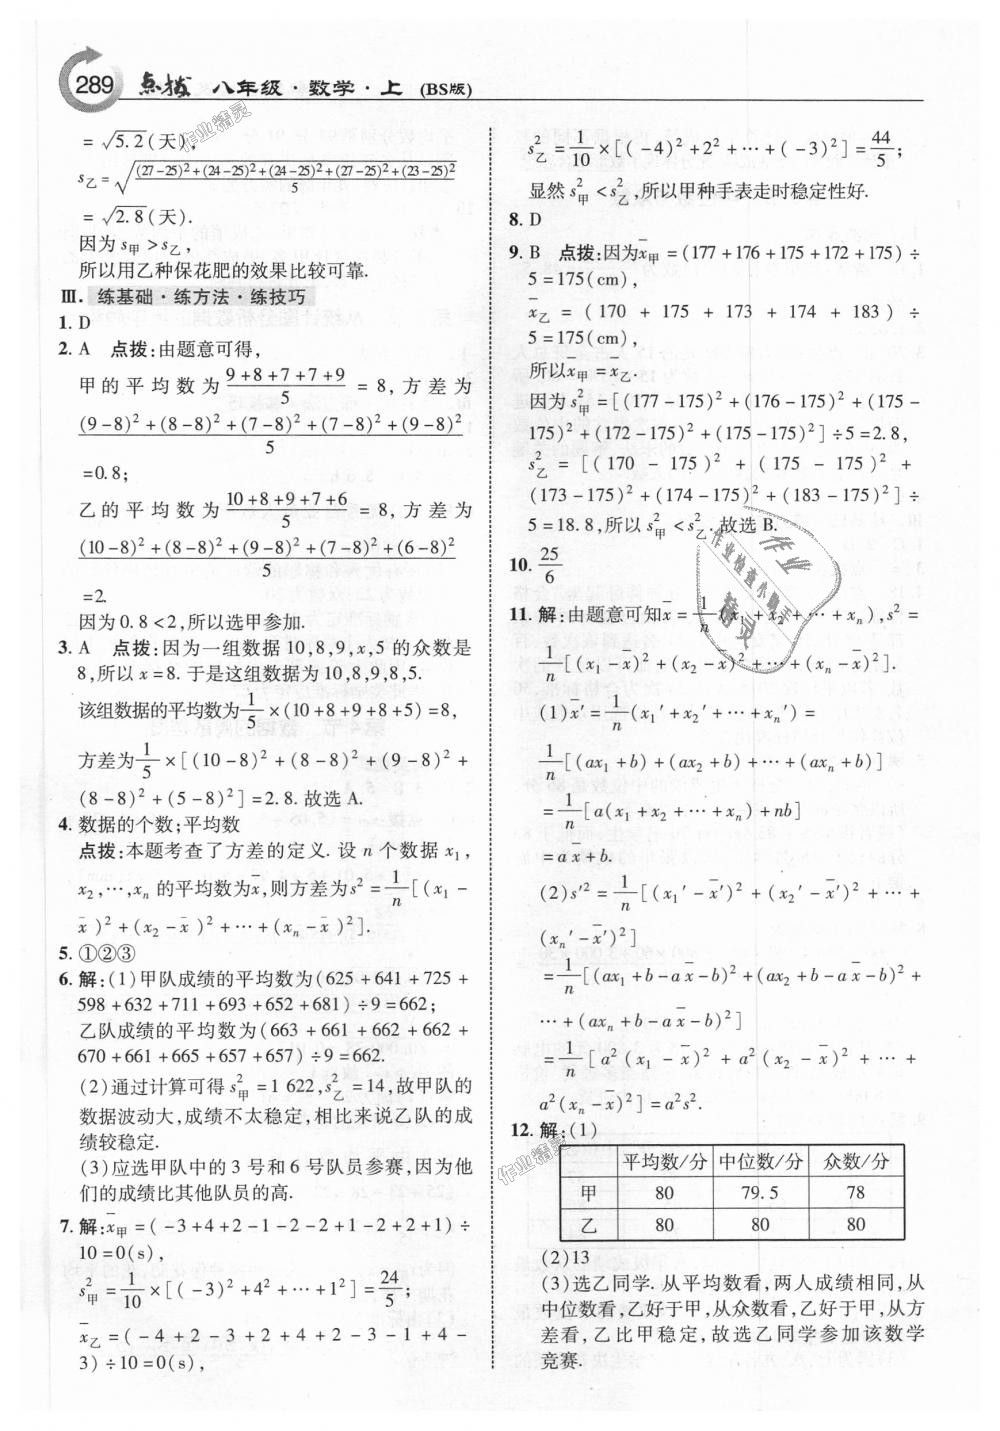 289 点拨 八年级·数学·上 (BS版)
= √5.2(天),
s乙 = √[((27-25)²+(24-25)²+(24-25)²+(27-25)²+(23-25)²)/5]
= √2.8(天).
因为 s甲 > s乙,
所以用乙种保花肥的效果比较可靠.
Ⅲ. 练基础·练方法·练技巧
1. D
2. A 点拨:由题意可得,
甲的平均数为 (9+8+7+7+9)/5 = 8,方差为
((9-8)²+(8-8)²+(7-8)²+(7-8)²+(9-8)²)/5
=0.8;
乙的平均数为 (10+8+9+7+6)/5 = 8,方差为
((10-8)²+(8-8)²+(9-8)²+(7-8)²+(6-8)²)/5
=2.
因为 0.8<2,所以选甲参加.
3. A 点拨:因为一组数据 10,8,9,x,5 的众数是
8,所以 x=8. 于是这组数据为 10,8,9,8,5.
该组数据的平均数为 1/5 ×(10+8+9+8+5)=8,
方差为 1/5 ×[(10-8)²+(8-8)²+(9-8)²+
(8-8)²+(5-8)²]=2.8. 故选 A.
4. 数据的个数;平均数
点拨:本题考查了方差的定义. 设 n 个数据 x₁,
x₂,…,xₙ 的平均数为x̄,则方差为 s² = 1/n [(x₁ -
x̄)²+(x₂-x̄)²+…+(xₙ-x̄)²].
5. ①②③
6. 解:(1)甲队成绩的平均数为(625+641+725+
598+632+711+693+652+681)÷9=662;
乙队成绩的平均数为(663+661+662+662+
670+661+665+657+657)÷9=662.
(2)通过计算可得 s²甲=1 622,s²乙=14,故甲队的
数据波动大,成绩不太稳定,相比来说乙队的成
绩较稳定.
(3)应选甲队中的 3 号和 6 号队员参赛,因为他
们的成绩比其他队员的高.
7. 解:x̄甲=(-3+4+2-1-2-2+1-2+2+1)÷
10=0(s),
s²甲 = 1/10 ×[(-3)²+4²+…+1²] = 24/5;
x̄乙=(-4+2-3+2+4+2-3-1+4-
3)÷10=0(s),
s²乙 = 1/10 ×[(-4)²+2²+…+(-3)²] = 44/5;
显然 s²甲<s²乙,所以甲种手表走时稳定性好.
8. D
9. B 点拨:因为x̄甲=(177+176+175+172+175)÷
5=175(cm),
x̄乙 =(170+175+173+174+183)÷
5=175(cm),
所以x̄甲=x̄乙.
因为 s²甲=[(177-175)²+(176-175)²+(175-
175)²+(172-175)²+(175-175)²]÷5=2.8,
s²乙=[(170-175)²+(175-175)²+
(173-175)²+(174-175)²+(183-175)²]÷
5=18.8,所以 s²甲<s²乙. 故选 B.
10. 25/6
11. 解:由题意可知x̄= 1/n (x₁+x₂+…+xₙ),s²=
1/n [(x₁-x̄)²+(x₂-x̄)²+…+(xₙ-x̄)²].
(1)x̄′= 1/n (x₁′+x₂′+…+xₙ′)=
1/n [(ax₁+b)+(ax₂+b)+…+(axₙ+b)]
= 1/n [a(x₁+x₂+…+xₙ)+nb]
=ax̄+b.
(2)s′²= 1/n [(x₁′-x̄′)²+(x₂′-x̄′)²+…+
(xₙ′-x̄′)²]
= 1/n [(ax₁+b-ax̄-b)²+(ax₂+b-ax̄-b)²+
…+(axₙ+b-ax̄-b)²]
= 1/n [a²(x₁-x̄)²+a²(x₂-x̄)²+…+
a²(xₙ-x̄)²]=a²s².
12. 解:(1)
平均数/分 中位数/分 众数/分
甲 80 79.5 78
乙 80 80 80
(2)13
(3)选乙同学. 从平均数看,两人成绩相同,从
中位数看,乙好于甲,从众数看,乙好于甲,从方
差看,乙比甲稳定,故选乙同学参加该数学
竞赛.
作业精灵
作业精灵
作业
作业检查小助手
精灵